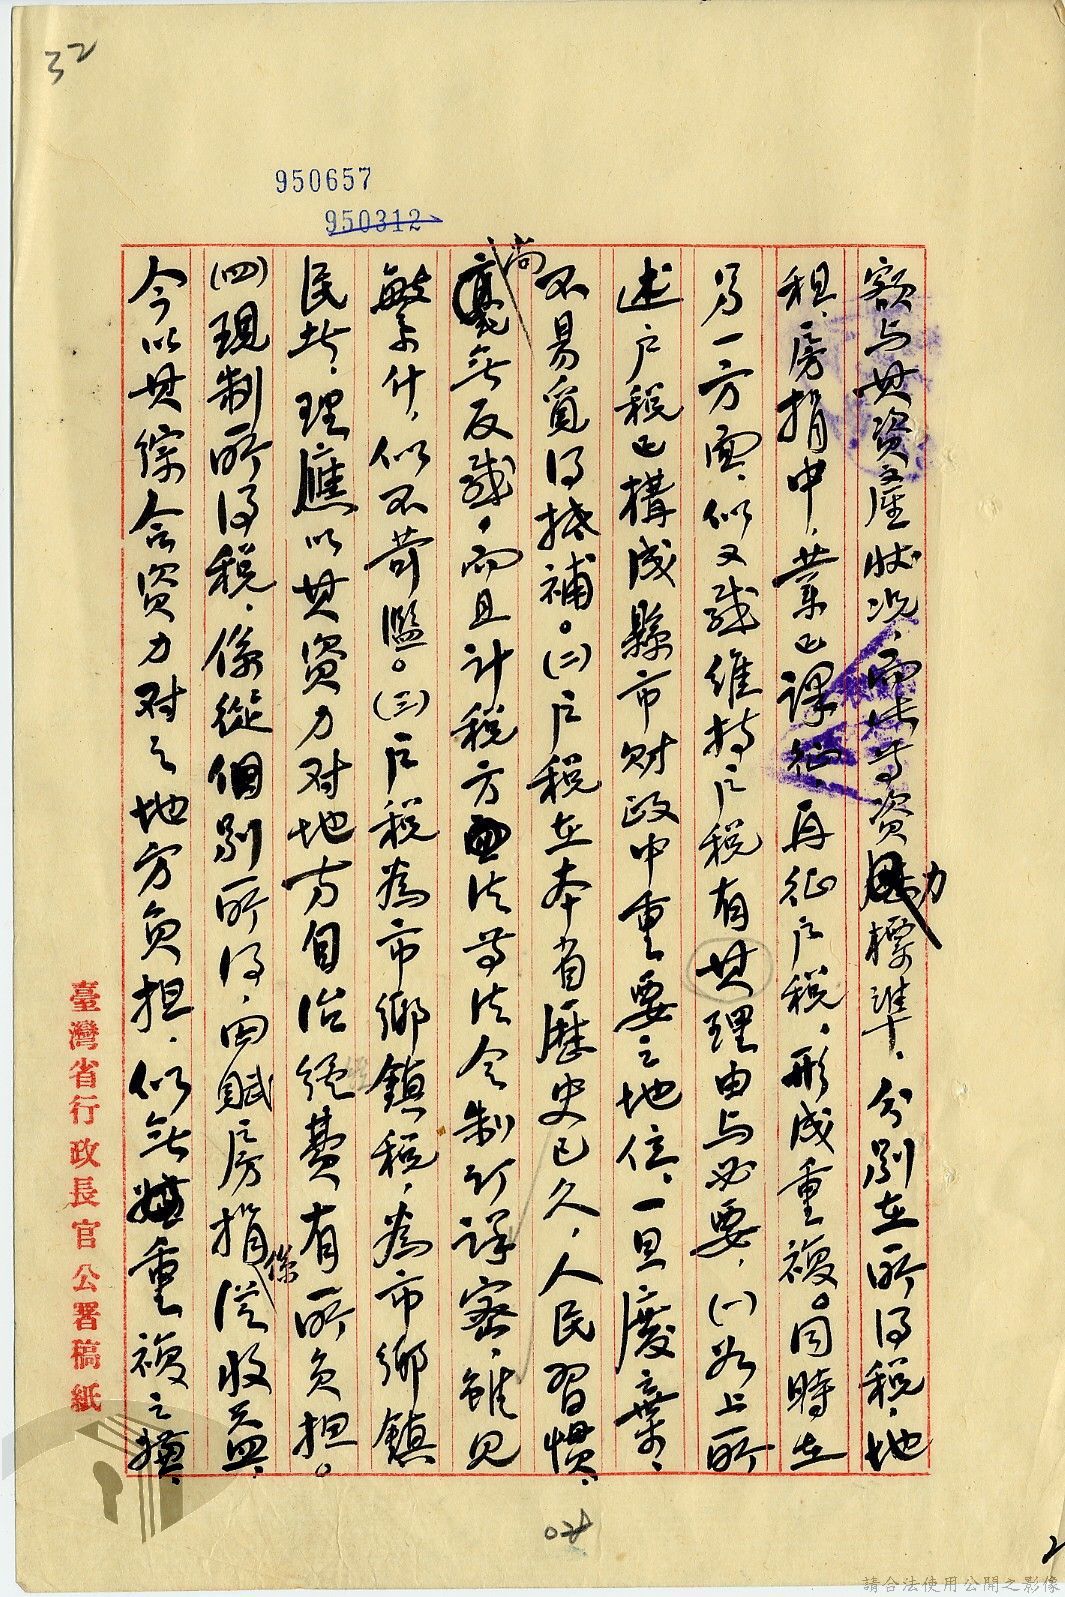 32
950657
950312
額与其資產狀况，而此等資力標準，分别在所得税、地
租、房捐中，業已課征，再征户税，形成重複。同時在
另一方面，似又感維持户税有其理由与必要，(一)如上所
述户税已構成縣市財政中重要之地位，一旦廢棄，
不易覓得抵補。(二)户税在本省歷史已久，人民習慣，
尚無反感，而且計税方法等法令制訂詳密，雖見
繁什，似不苛濫。(三)户税為市鄉鎮税，為市鄉鎮
民者，理應以其資力对地方自治經費有所負担。
(四)現制所得税，係從個别所得，田賦房捐係從收益，
今以其綜合資力对之地方負担，似無重複之嫌，
臺灣省行政長官公署稿紙
02
請合法使用公開之影像